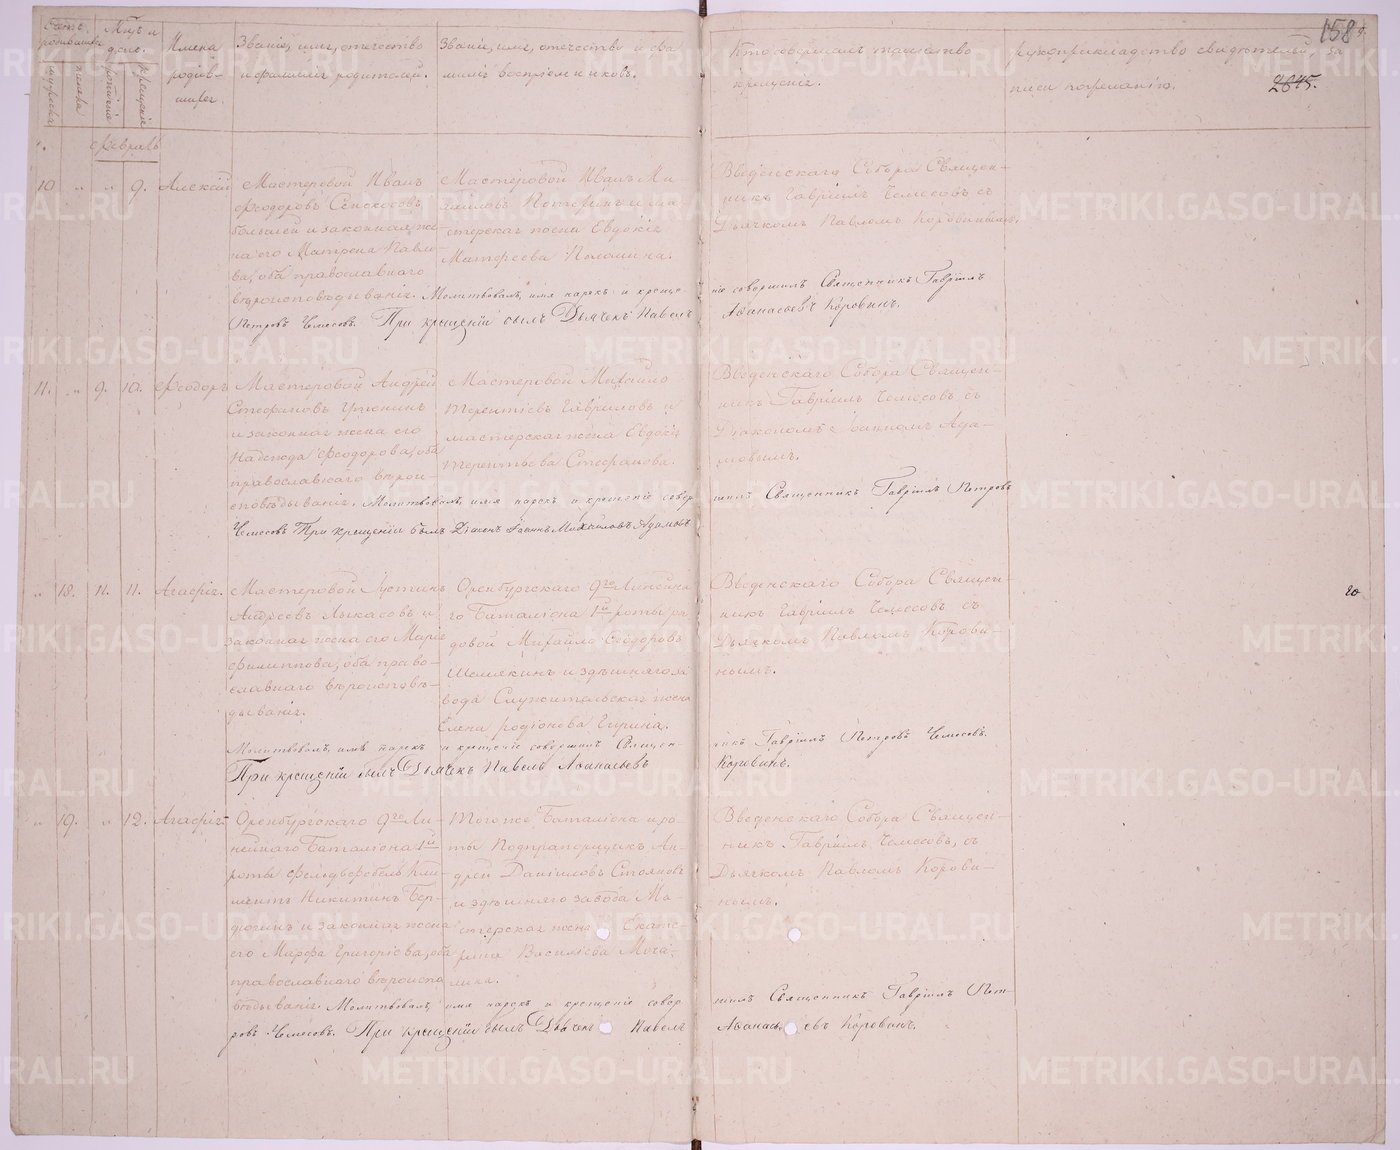 158
2845.
Имена
родив-
шихс.
Званіе, имя, отчество
и фамилія родителей.
Званіе, имя, отчество и фа
милія воспріемниковъ.
Кто совершалъ таинство
крещенія.
рукоприкладство свидѣтелей за
писи по желанію.
Февраль
10 " " 9. Алексѣй
Мастеровой Иванъ
Феодоровъ
и законная же
на его Матрена Павло
ва, оба православнаго
вѣроисповѣдыванія. Молитвовалъ, имя нарекъ и креще
Петровъ Чемесовъ. При крещеніи былъ Дьячекъ Павелъ
Мастеровой Иванъ Ми
хайловъ и ма-
стерская жена Евдокія
Матѳеева
Введенскаго Собора Священ-
никъ Гавріилъ Чемесовъ съ
Дьячкомъ Павломъ Коровинымъ.
ніе совершилъ Священникъ Гавріилъ
Аѳанасьевъ Коровинъ.
11. " 9. 10. Феодоръ
Мастеровой Андрей
Стефановъ
и законная жена его
Надежда Феодорова, оба
православнаго вѣрои-
сповѣдыванія. Молитвовалъ, имя нарекъ и крещеніе совер
Чемесовъ При крещеніи былъ Діаконъ Іоаннъ Михайловъ Адамовъ
Мастеровой Михайло
Терентіевъ Гавриловъ и
мастерская жена Евдокія
Терентьева Стефанова.
Введенскаго Собора Священ-
никъ Гавріилъ Чемесовъ съ
Діакономъ Іоанномъ Ада-
мовымъ.
шилъ Священникъ Гавріилъ Петровъ
" 18. 11. 11. Агафія.
Мастеровой Іустинъ
Андреевъ Лыкасовъ и
законная жена его Марія
Филиппова, оба право-
славнаго вѣроисповѣ-
дыванія.
Молитвовалъ, имя нарекъ и крещеніе совершилъ Священ-
При крещеніи былъ Дьячекъ Павелъ Аѳанасьевъ
Оренбургскаго 9го Линейна
го Баталіона 1й роты ря
довой Михайло Феодоровъ
Шемякинъ и здѣшняго за
вода Служительская жена
Елена родіонова
Введенскаго Собора Священ-
никъ Гавріилъ Чемесовъ съ
Дьячкомъ Павломъ Корови-
нымъ.
никъ Гавріилъ Петровъ Чемесовъ.
Коровинъ.
20
" 19. " 12. Агафія.
Оренбургскаго 9го Ли-
нейнаго Баталіона 1й
роты Фельдвебель Кли
ментъ Никитинъ Бер-
и законная жена
его Марфа Григоріева, оба
православнаго вѣроиспо
вѣдыванія. Молитвовалъ, имя нарекъ и крещеніе совер
ровъ Чемесовъ. При крещеніи былъ Дьячекъ Павелъ
Того же Баталіона и ро-
ты Подпрапорщикъ Ан-
дрей Даніиловъ Стояновъ
и здѣшняго завода Ма-
стерская жена Екате-
рина Василіева Моча-
лина.
Введенскаго Собора Священ-
никъ Гавріилъ Чемесовъ, съ
Дьячкомъ Павломъ Корови-
нымъ.
шилъ Священникъ Гавріилъ Пет-
Аѳанасьевъ Коровинъ.
METRIKI.GASO-URAL.RU